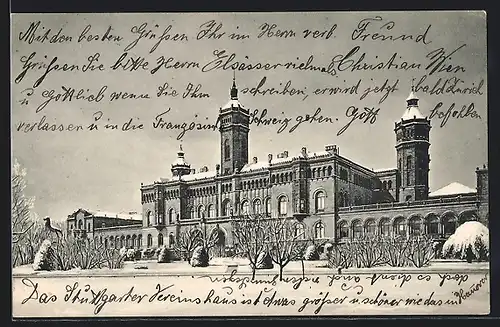 Mit den besten Grüßen Ihr im Herrn verb. Freund
Grüssen Sie bitte Herrn Elsässer vielmals Christian Wien
u Gottlieb wenn Sie Ihm schreiben, er wird jetzt bald Zürich
verlassen u in die Französin Schweiz gehen. Gott befohlen
doch es dient auch
Das Stuttgarter Vereinshaus ist etwas grösser u schöner wie das in
Hanover